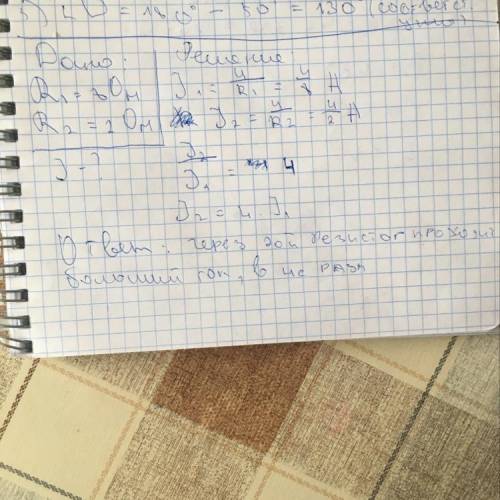 5) ∠D = 180° - 50 = 130 (соответ.
углы)
Дано:
R₁ = 8 Ом
R₂ = 2 Ом
J - ?
Решение:
J₁ = u/R₁ = u/8 A
J₂ = u/R₂ = u/2 A
J₂/J₁ = 4
J₂ = 4 · J₁
Ответ: через 2ой резистор проходит
больший ток, в 4е раза